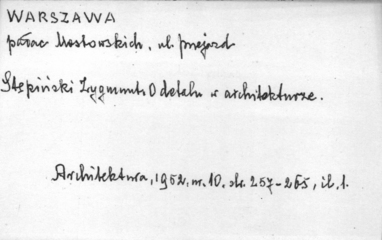 WARSZAWA
pałac Mostowskich, ul. Przejazd
Stępiński Zygmunt: O detalu w architekturze.
Architektura, 1952, nr. 10. str. 257-265, il. 1.